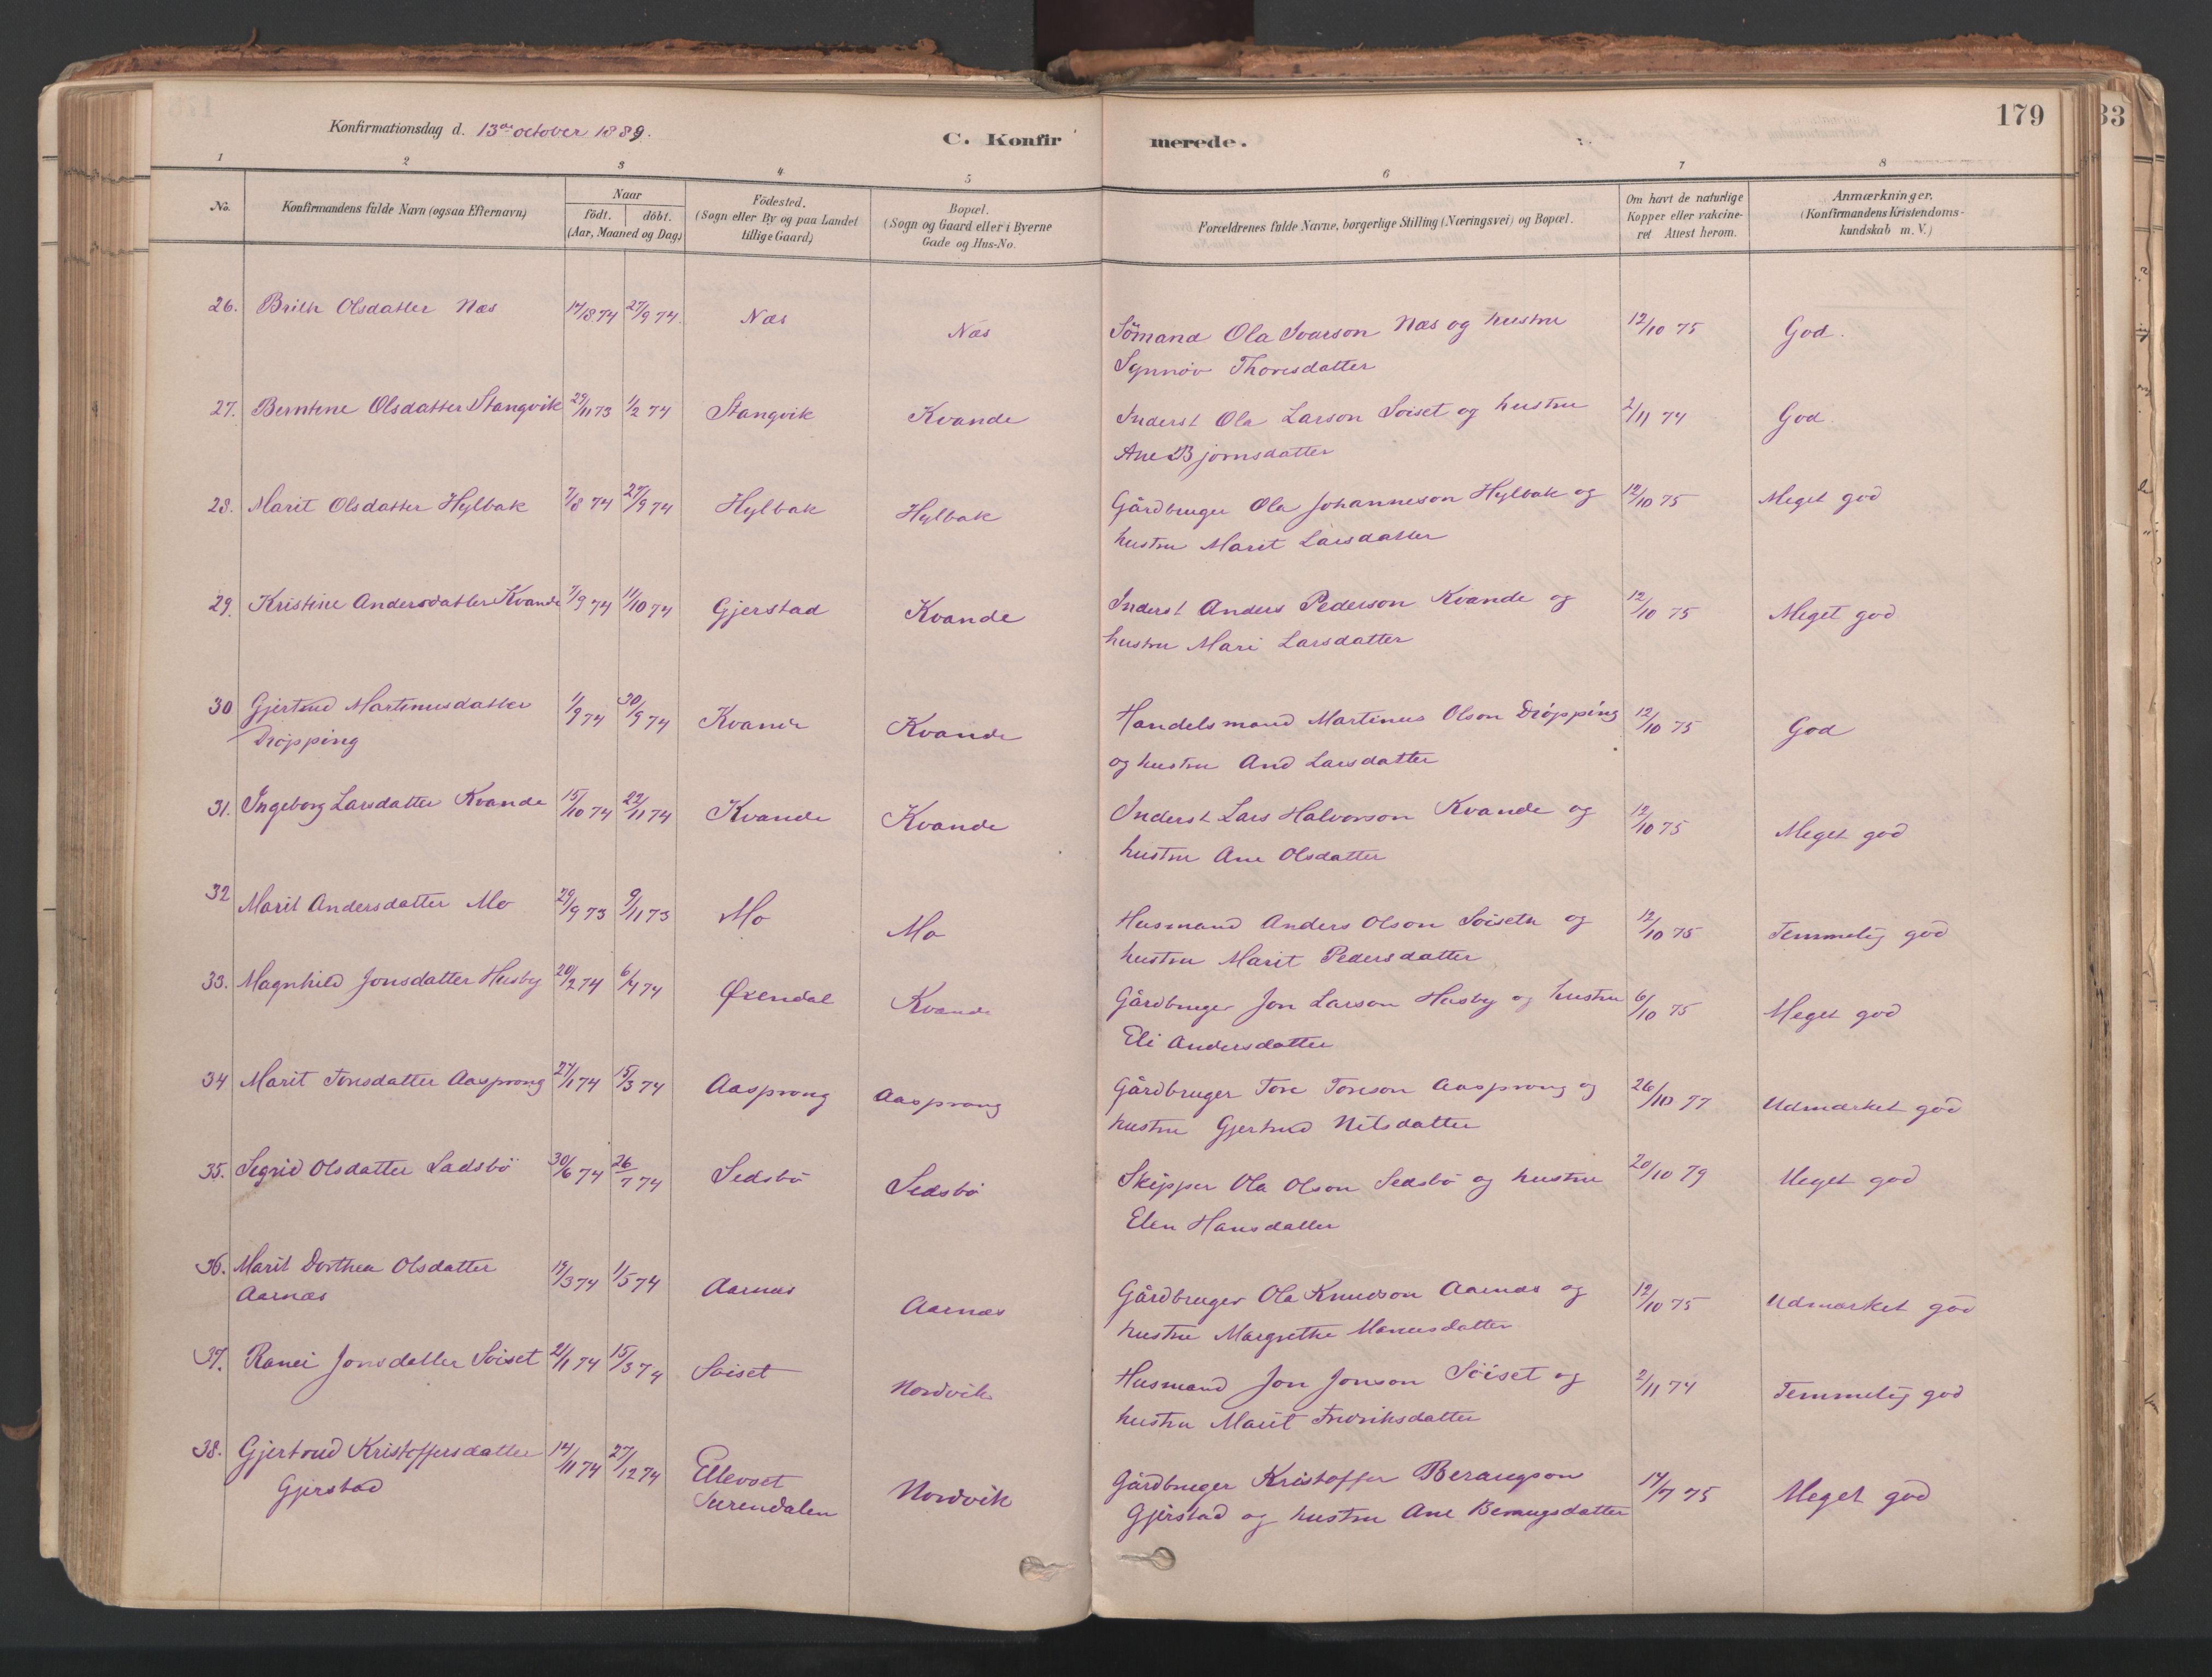 179
33
Konfirmationsdag d. 13de october 1889.
C. Konfirmerede.
1 2 3 4 5 6 7 8
No.
Konfirmandens fulde Navn (ogsaa Efternavn)
Naar
födt. döbt.
(Aar, Maaned og Dag)
Födested.
(Sogn eller By og paa Landet
tillige Gaard)
Bopæl.
(Sogn og Gaard eller i Byerne
Gade og Hus-No.
Forældrenes fulde Navne, borgerlige Stilling (Næringsvei) og Bopæl.
Om havt de naturlige
Kopper eller vakcine-
ret Attest herom.
Anmærkninger.
(Konfirmandens Kristendoms-
kundskab m. V.)
26. Brith Olsdatter Næs 17/8 74 27/9 74. Næs Næs Sömand Ola Ivarson Næs og hustru 12/10 75 God.
Synnöv Thoresdatter
27. Berntine Olsdatter Stangvik 29/11 73 1/2 74 Stangvik Kvande Inderst Ola Larson Söiset og hustru 2/11 74 God
Ane Bjornsdatter
28. Marit Olsdatter Hylbak 7/8 74 27/9 74 Hylbak Hylbak Gårdbruger Ola Johanneson Hylbak og 12/10 75 Meget god
hustru Marit Larsdatter
29. Kristine Andersdatter Kvande 7/9 74 11/10 74 Gjerstad Kvande Inderst Anders Pederson Kvande og 12/10 75 Meget god
hustru Mari Larsdatter
30 Gjertrud Martinusdatter 1/9 74 30/9 74 Kvande Kvande Handelsmand Martinus Olson Dröpping 12/10 75 God
Dröpping og hustru And Larsdatter
31. Ingeborg Larsdatter Kvande 15/10 74 22/11 74 Kvande Kvande Inderst Lars Halvorson Kvande og 12/10 75 Meget god
hustru Ane Olsdatter
32 Marit Andersdatter Mo 29/9 73 9/11 73 Mo Mo Husmand Anders Olson Söiseth og 12/10 75 Temmelig god
hustru Marit Pedersdatter
33. Magnhild Jonsdatter Husby 20/2 74 6/4 74 Øxendal Kvande Gårdbruger Jon Larson Husby og hustru 6/10 75 Meget god
Eli Andersdatter
34 Marit Toresdatter Aasprong 27/1 74 15/3 74 Aasprong Aasprong Gårdbruger Tore Toreson Aasprong og 26/10 77 Udmærket god
hustru Gjertrud Nilsdatter
35. Segrid Olsdatter Sædsbö 30/6 74 26/7 74 Sedsbö Sedsbö Skipper Ola Olson Sedsbö og hustru 20/10 79 Meget god
Elen Hansdatter
36. Marit Dorthea Olsdatter 19/3 74 1/5 74 Aarnæs Aarnæs Gårdbruger Ola Knudson Aarnæs og 12/10 75 Udmærket god
Aarnæs hustru Margrethe Monsdatter
37. Ranei Jonsdatter Söiset 21/1 74 15/3 74 Söiset Nordvik Husmand Jon Jonson Söiset og 2/11 74 Temmelig god
hustru Marit Fredriksdatter
38. Gjertrud Kristoffersdatter 14/11 74 27/12 74 Ellevset Nordvik Gårdbruger Kristoffer Beraugson 14/7 75 Meget god
Gjerstad Surendalen Gjerstad og hustru Ane Beraugsdatter